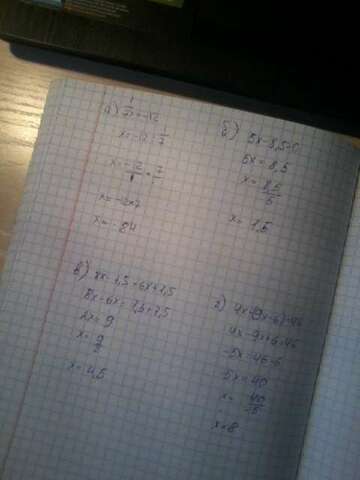 а) 1/7x = -12
x = -12 : 1/7
x = -12/1 · 7/1
x = -12·7
x = -84
б) 5x - 8,5 = 0
5x = 8,5
x = 8,5/5
x = 1,5
в) 8x - 7,5 = 6x + 1,5
8x - 6x =
2x = 9
x = 9/2
x = 4,5
г)
4x - 9x + 6 = 46
-5x = 46 - 6
-5x = 40
x = 40/-5
x = 8